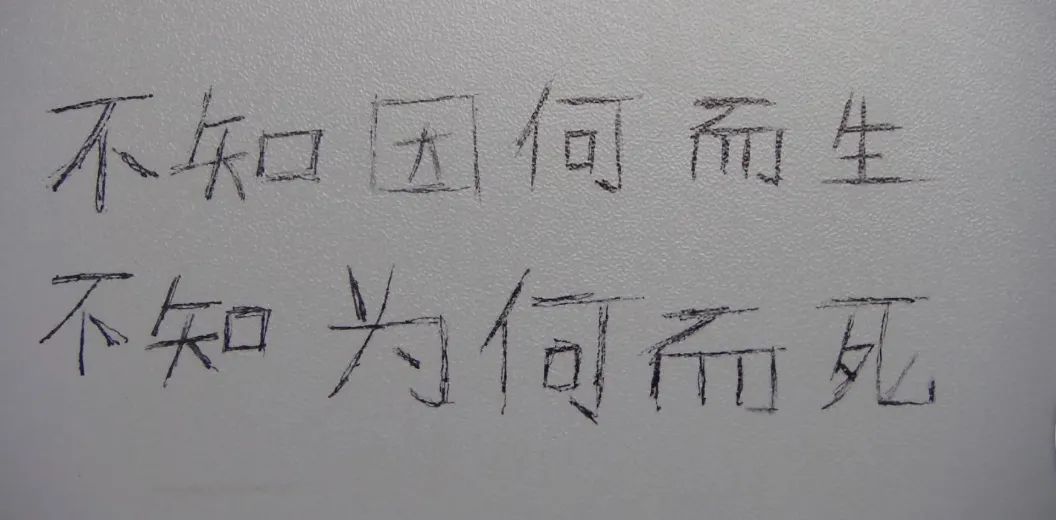 不知因何而生
不知为何而死